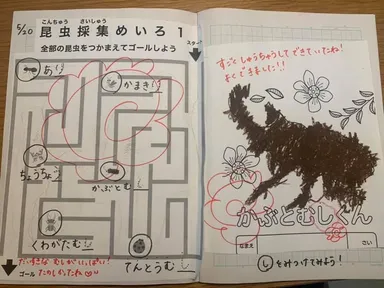 5/20
こんちゅう さいしゅう
昆虫採集めいろ1
全部の昆虫をつかまえてゴールしよう
スタート
あり
かまきり
ちょうちょう
かぶとむし
くわがたむし
てんとうむし
だいすきな むしが いっぱい!
ゴール
たのしかったね
すごく しゅうちゅうして できていたね!
よく できました!!
かぶとむしくん
なまえ
さい
しをみつけてみよう!